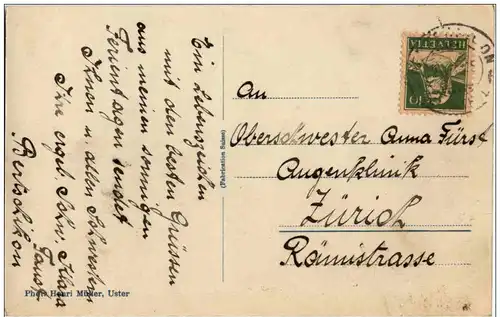 Ein Lebenszeichen
mit den besten Grüssen
aus meinen sonnigen
Ferientagen sendet
Ihnen u. allen Schwestern
Ihre ergeb. Schw. Klara
Faust
Bertschikon
(Fabrication Suisse)
Phot. Henri Müller, Uster
HELVETIA
10
An
Oberschwester Anna Fürst
Augenklinik
Zürich
Rämistrasse